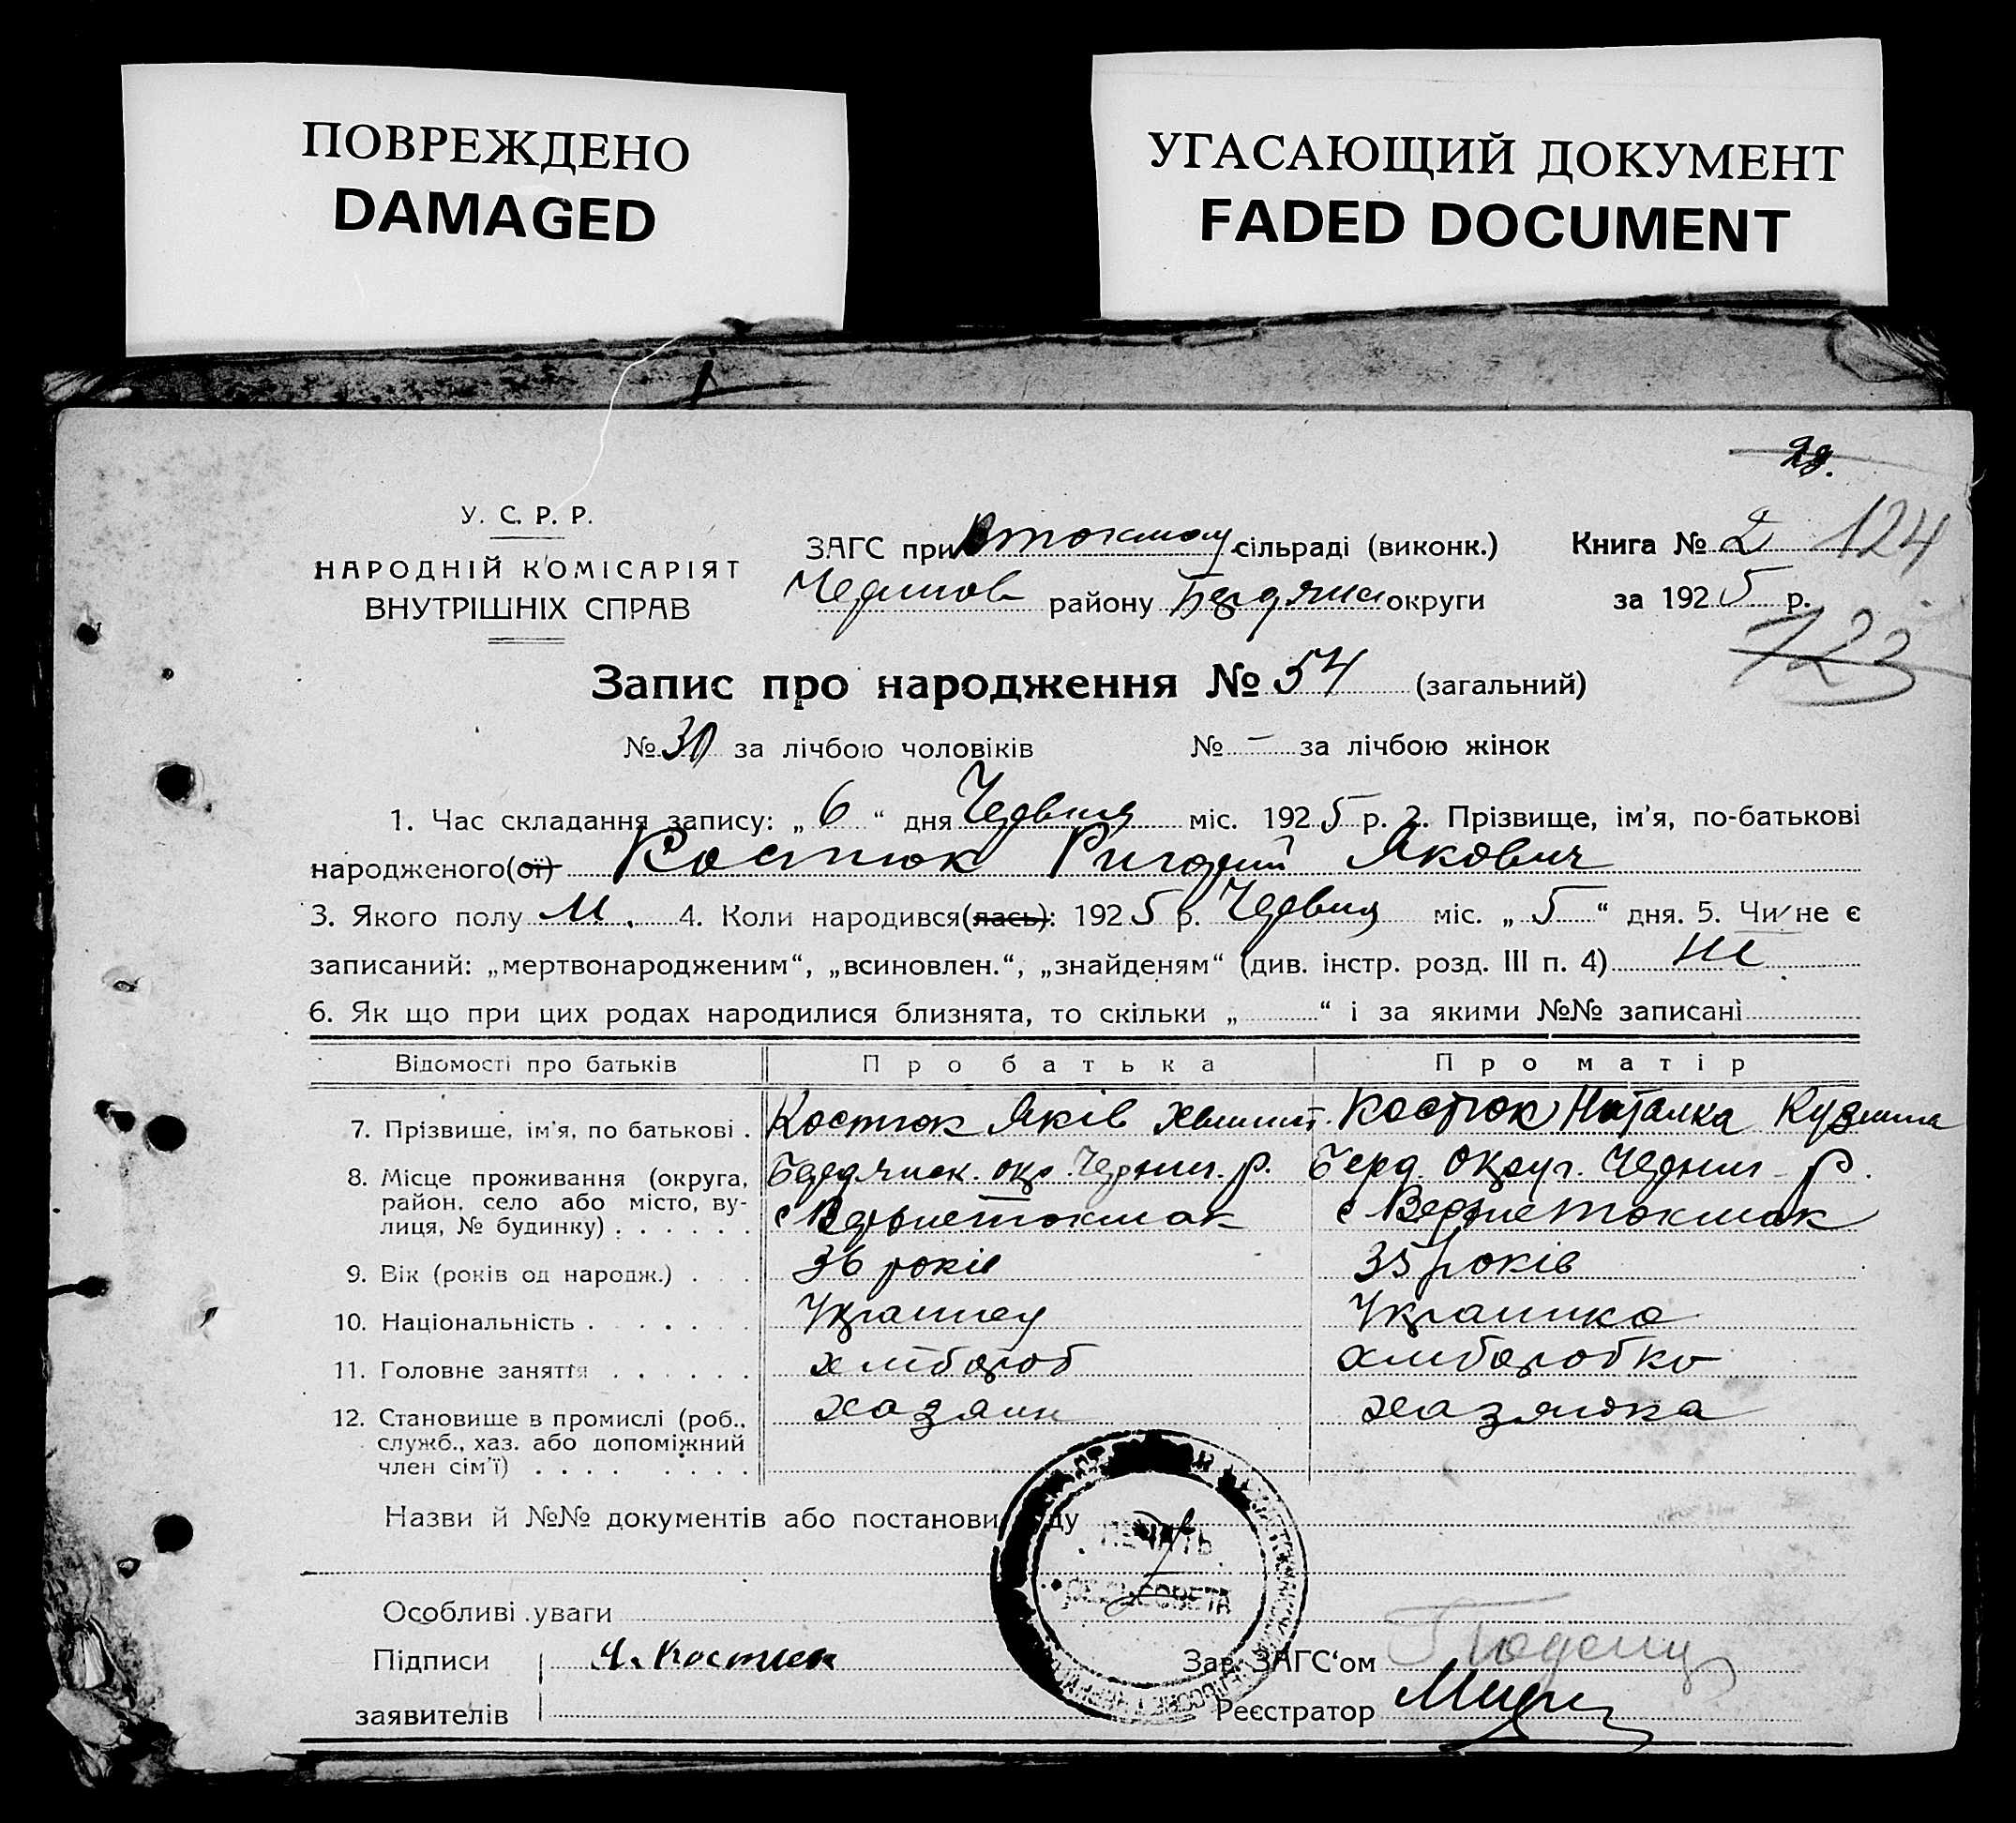 ПОВРЕЖДЕНО
DAMAGED
УГАСАЮЩИЙ ДОКУМЕНТ
FADED DOCUMENT
У. С. Р. Р.
НАРОДНІЙ КОМІСАРІЯТ
ВНУТРІШНІХ СПРАВ
ЗАГС при Втокмац. сільраді (виконк.)
Книга № 2 124
Черниг района Бердянск округи
за 1925 р.
123
Запис про народження № 54 (загальний)
№ 30 за лічбою чоловіків № — за лічбою жінок
1. Час складання запису: „ 6 “ дня Червця міс. 1925 р. 2. Прізвище, ім'я, по-батькові
народженого(ої) Костюк Якович
3. Якого полу М. 4. Коли народився(лась): 1925 р. Червця міс. „ 5 “ дня. 5. Чи не є
записаний: „мертвонародженим“, „всиновлен.“, „знайденям“ (див. інстр. розд. III п. 4) Ні
6. Як що при цих родах народилися близнята, то скільки „ “ і за якими №№ записані
Відомості про батьків Про батька Про матір
7. Прізвище, ім'я, по батькові . Костюк Яків Костюк Наталка Кузьмин
8. Місце проживання (округа, район, село або місто, вулиця, № будинку) . . . . . .
Бердянск. окр. Черниг. р. Берд. округ. Черниг. р.
с Верьхнетокмак с Верхнетокмак
9. Вік (років од народж.) . . . 36 років 35 років
10. Національність . . . . . . Українец Українка
11. Головне заняття . . . . . . хлібороб хліборобка
12. Становище в промислі (роб., служб., хаз. або допоміжний член сім'ї) . . . . . . . .
хазяин хазяйка
Назви й №№ документів або постанови суду
ПЕЧАТЬ
СЕЛЬ-СОВЕТА
Особливі уваги
Підписи Я. Костюк Зав. ЗАГС'ом
заявителів Реєстратор